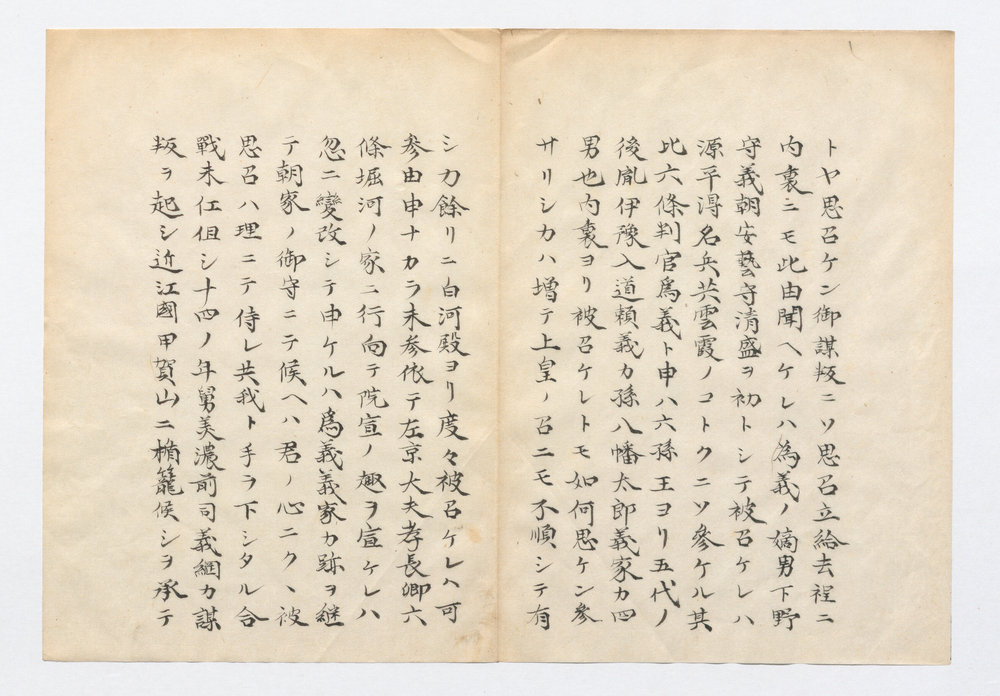 トヤ思召ケン御謀叛ニソ思召立給去程ニ
内裏ニモ此由聞ヘケレハ為義ノ嫡男下野
守義朝安藝守清盛ヲ初トシテ被召ケレハ
源平淂名兵共雲霞ノコトクニソ參ケル其
比六條判官爲義ト申ハ六孫王ヨリ五代ノ
後胤伊豫入道頼義カ孫八幡太郎義家カ四
男也内裏ヨリ被召ケレトモ如何思ケン參
サリシカハ増テ上皇ノ召ニモ不順シテ有
シカ餘リニ白河殿ヨリ度々被召ケレハ可
參由申ナカラ未参依テ左京大夫孝長卿六
條堀河ノ家ニ行向テ院宣ノ趣ヲ宣ケレハ
忽ニ變改シテ申ケルハ爲義義家カ跡ヲ継
テ朝家ノ御守ニテ候ヘハ君ノ心ニクヽ被
思召ハ理ニテ侍レ共我ト手ヲ下シタル合
戰未仕但シ十四ノ年舅美濃前司義綱カ謀
叛ヲ起シ近江國甲賀山ニ楯籠候シヲ承テ